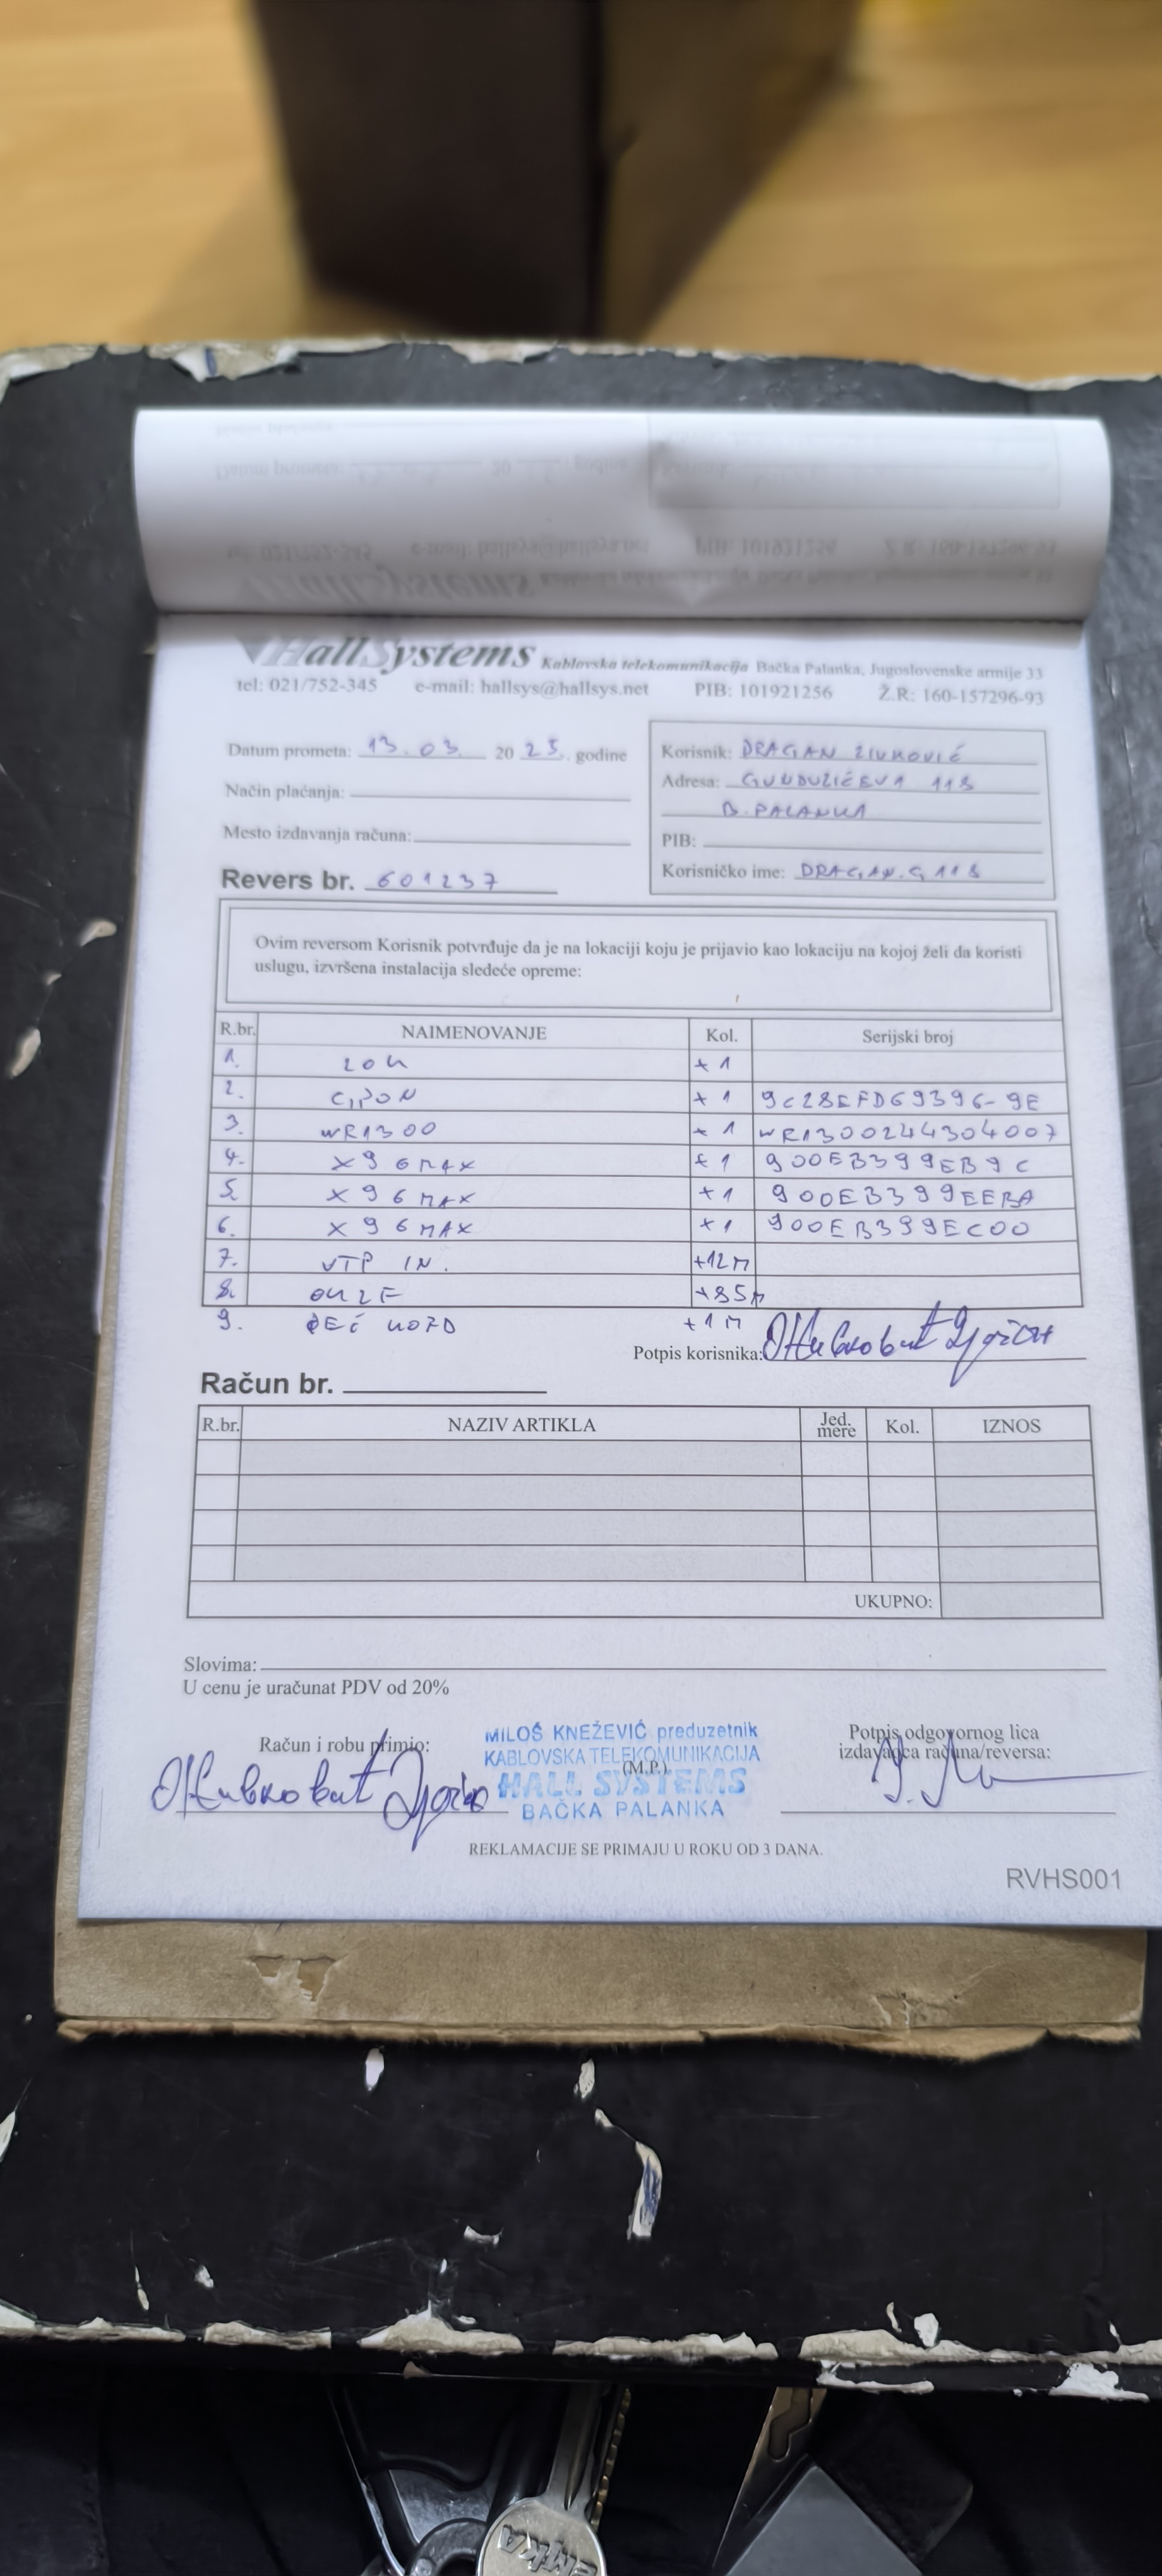 HallSystems Kablovska telekomunikacija Bačka Palanka, Jugoslovenske armije 33
tel: 021/752-345 e-mail: hallsys@hallsys.net PIB: 101921256 Ž.R: 160-157296-93
Datum prometa: 13.03. 20 25. godine
Način plaćanja:
Mesto izdavanja računa:
Revers br. 601237
Korisnik: DRAGAN ŽIVKOVIĆ
Adresa: GUNDULIĆEVA 118
B. PALANKA
PIB:
Korisničko ime: DRAGAN.G118
Ovim reversom Korisnik potvrđuje da je na lokaciji koju je prijavio kao lokaciju na kojoj želi da koristi
uslugu, izvršena instalacija sledeće opreme:
R.br. NAIMENOVANJE Kol. Serijski broj
1. ZOK +1
2. GPON +1 9C28EFD69396-9E
3. WR1300 +1 WR1300244304007
4. X96MAX +1 900EB399EB9C
5. X96MAX +1 900EB399EEBA
6. X96MAX +1 900EB399EC00
7. UTP IN. +12M
8. OK2F +85M
9. PEČ KOFD +1M
Potpis korisnika:
Račun br.
R.br. NAZIV ARTIKLA Jed. mere Kol. IZNOS
UKUPNO:
Slovima:
U cenu je uračunat PDV od 20%
Račun i robu primio:
MILOŠ KNEŽEVIĆ preduzetnik
KABLOVSKA TELEKOMUNIKACIJA
(M.P.)
HALL SYSTEMS
BAČKA PALANKA
Potpis odgovornog lica
izdavaoca računa/reversa:
REKLAMACIJE SE PRIMAJU U ROKU OD 3 DANA.
RVHS001